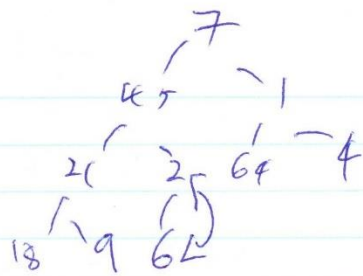 7
45 1
21 25 64 4
18 9 62